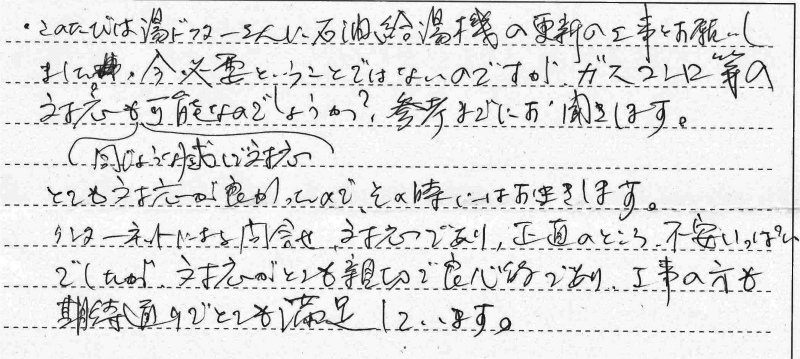 ・このたびは湯ドクターさんに石油給湯機の更新の工事をお願いし
ました。今必要ということではないのですが、ガスコンロ等の
対応も可能なのでしょうか?参考までにお聞きします。
(同じような感じで対応)
とても対応が良かったので、その時にはお願きします。
インターネットによる問合せ、対応であり、正直のところ不安いっぱい
でしたが、対応がとても親切で良心的であり、工事の方も
期待通りでとても満足しています。